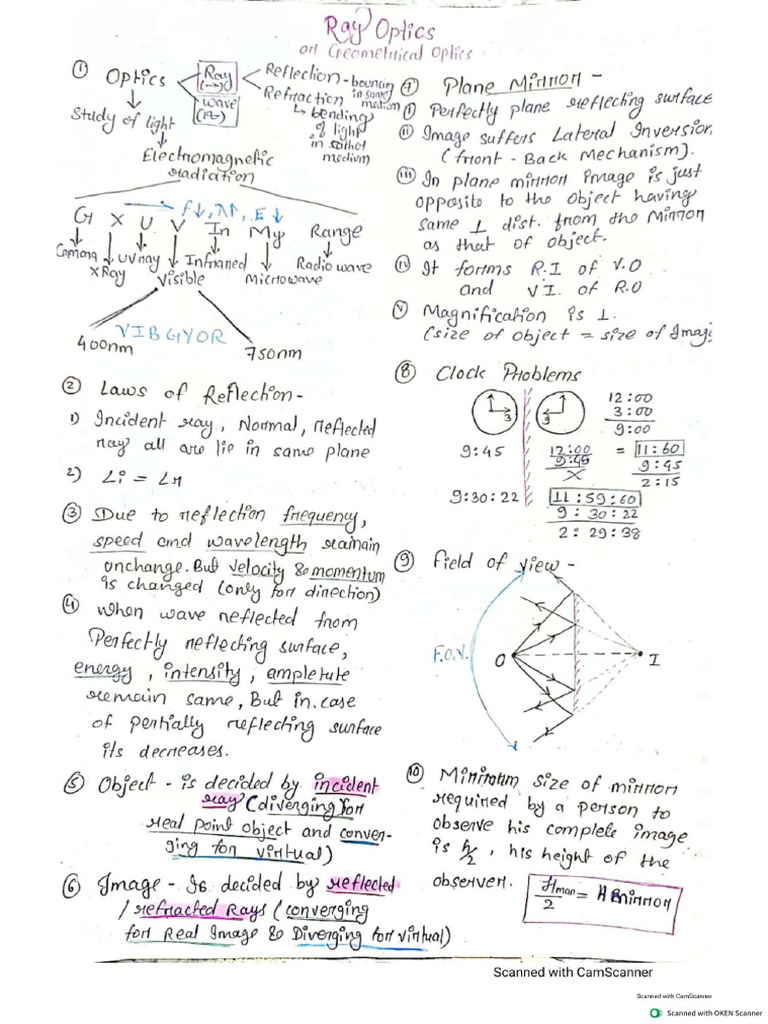 Ray Optics
or Geometrical Optics
① Optics
Ray
(→)
wave
Reflection - bouncing
in same
medium
Refraction
↳ bending
of light
in
medium
Study of light
Electromagnetic
radiation
f↓, λ↑, E↓
G X U V In My Range
Gamma
X Ray
UV ray
Visible
Infrared
Microwave
Radio wave
VIBGYOR
400nm
750nm
② Laws of Reflection-
1) Incident ray, Normal, reflected
ray all are lie in same plane
2) ∠i = ∠r
③ Due to reflection frequency,
speed and wavelength remain
unchange. But velocity & momentum
is changed (only for direction)
④ when wave reflected from
Perfectly reflecting surface,
energy, intensity, ampletute
remain same, But in case
of partially reflecting surface
its decreases.
⑤ Object - is decided by incident
ray (diverging for
real point object and conver-
ging for virtual)
⑥ Image - Is decided by reflected
/ refracted Rays (converging
for Real Image & Diverging for virtual)
⑦ Plane Mirror -
① Perfectly plane reflecting surface
② Image suffers Lateral Inversion
(front - Back Mechanism).
③ In plane mirror image is just
opposite to the object having
same ⊥ dist. from the Mirror
as that of object.
④ It forms R.I of V.O
and V I. of R.O
⑤ Magnification is 1.
(size of object = size of Imag
⑧ Clock Problems
3
3
12:00
3:00
9:00
9:45
12:00
9:45
X
= 11:60
9:45
2:15
9:30:22
11:59:60
9:30:22
2:29:38
⑨ Field of view -
F.O.V.
O
I
⑩ Minimum size of mirror
required by a person to
observe his complete image
is h/2, his height of the
observer.
Hman/2 = H mirror
Scanned with CamScanner
Scanned with CamScanner
Scanned with OKEN Scanner